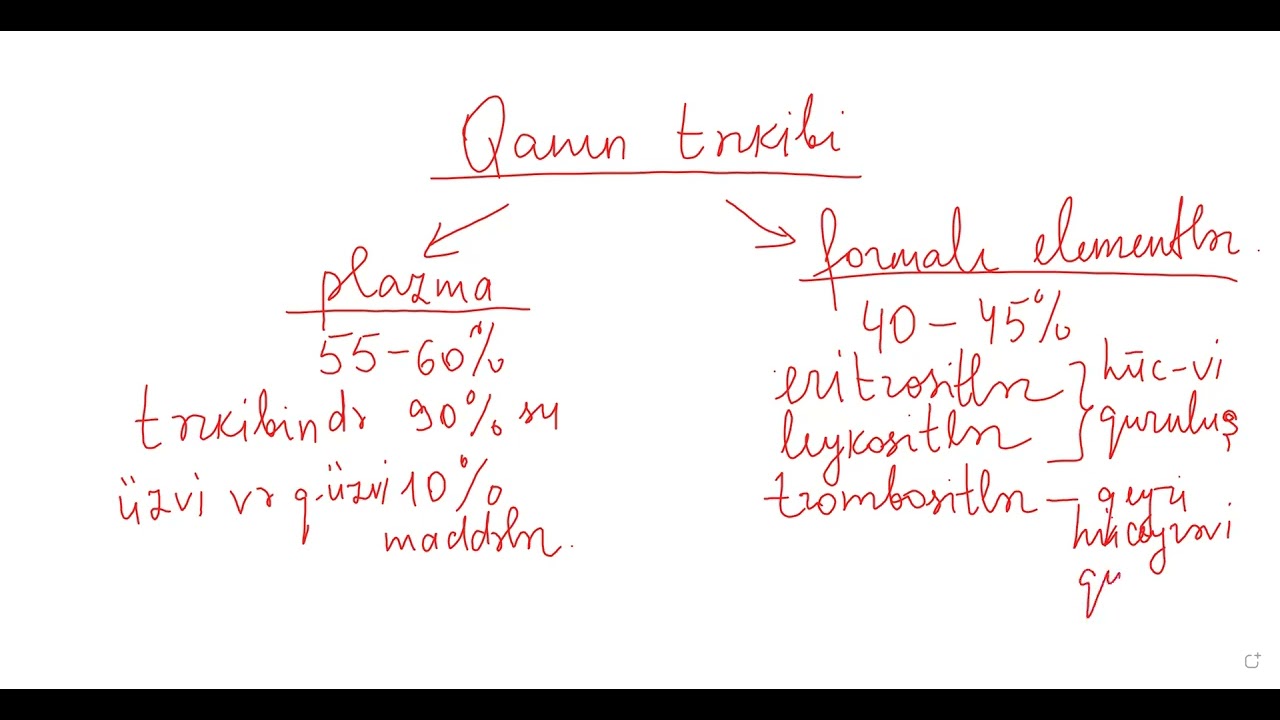 Qanın tərkibi
plazma
55-60%
tərkibində 90% su
üzvi və q-üzvi 10%
maddələr.
formalı elementlər.
40-45%
eritrositlər
leykositlər
hüc-vi
quruluş
trombositlər – qeyri
hüceyrəvi
qu